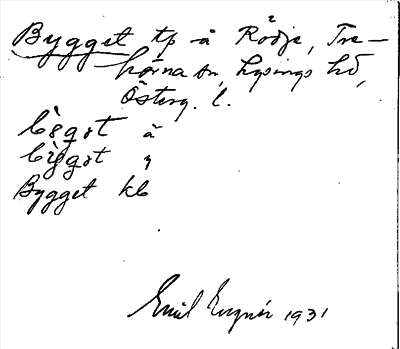 Bygget tp å Rödje, Tre-
hörna sn, Lysings hd,
Österg. l.
bìggot å
bìggot
Bygget kb
Emil 1931